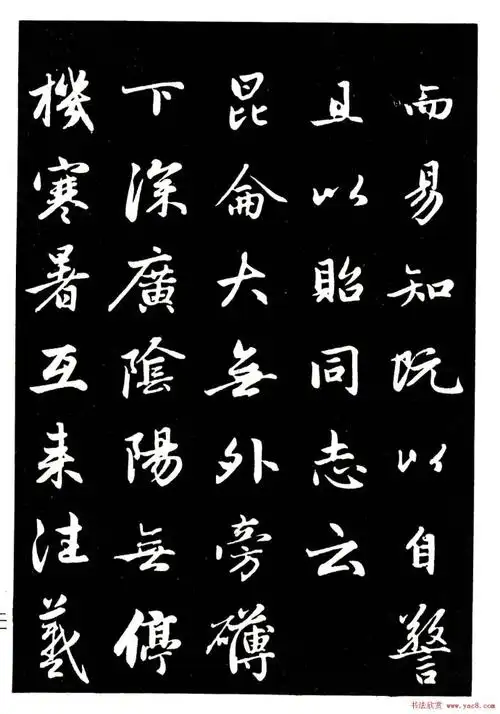 而易知既以自警
且以貽同志云
昆侖大無外旁礴
下深廣陰陽無停
機寒暑互来往羲
书法欣赏 www.yac8.com